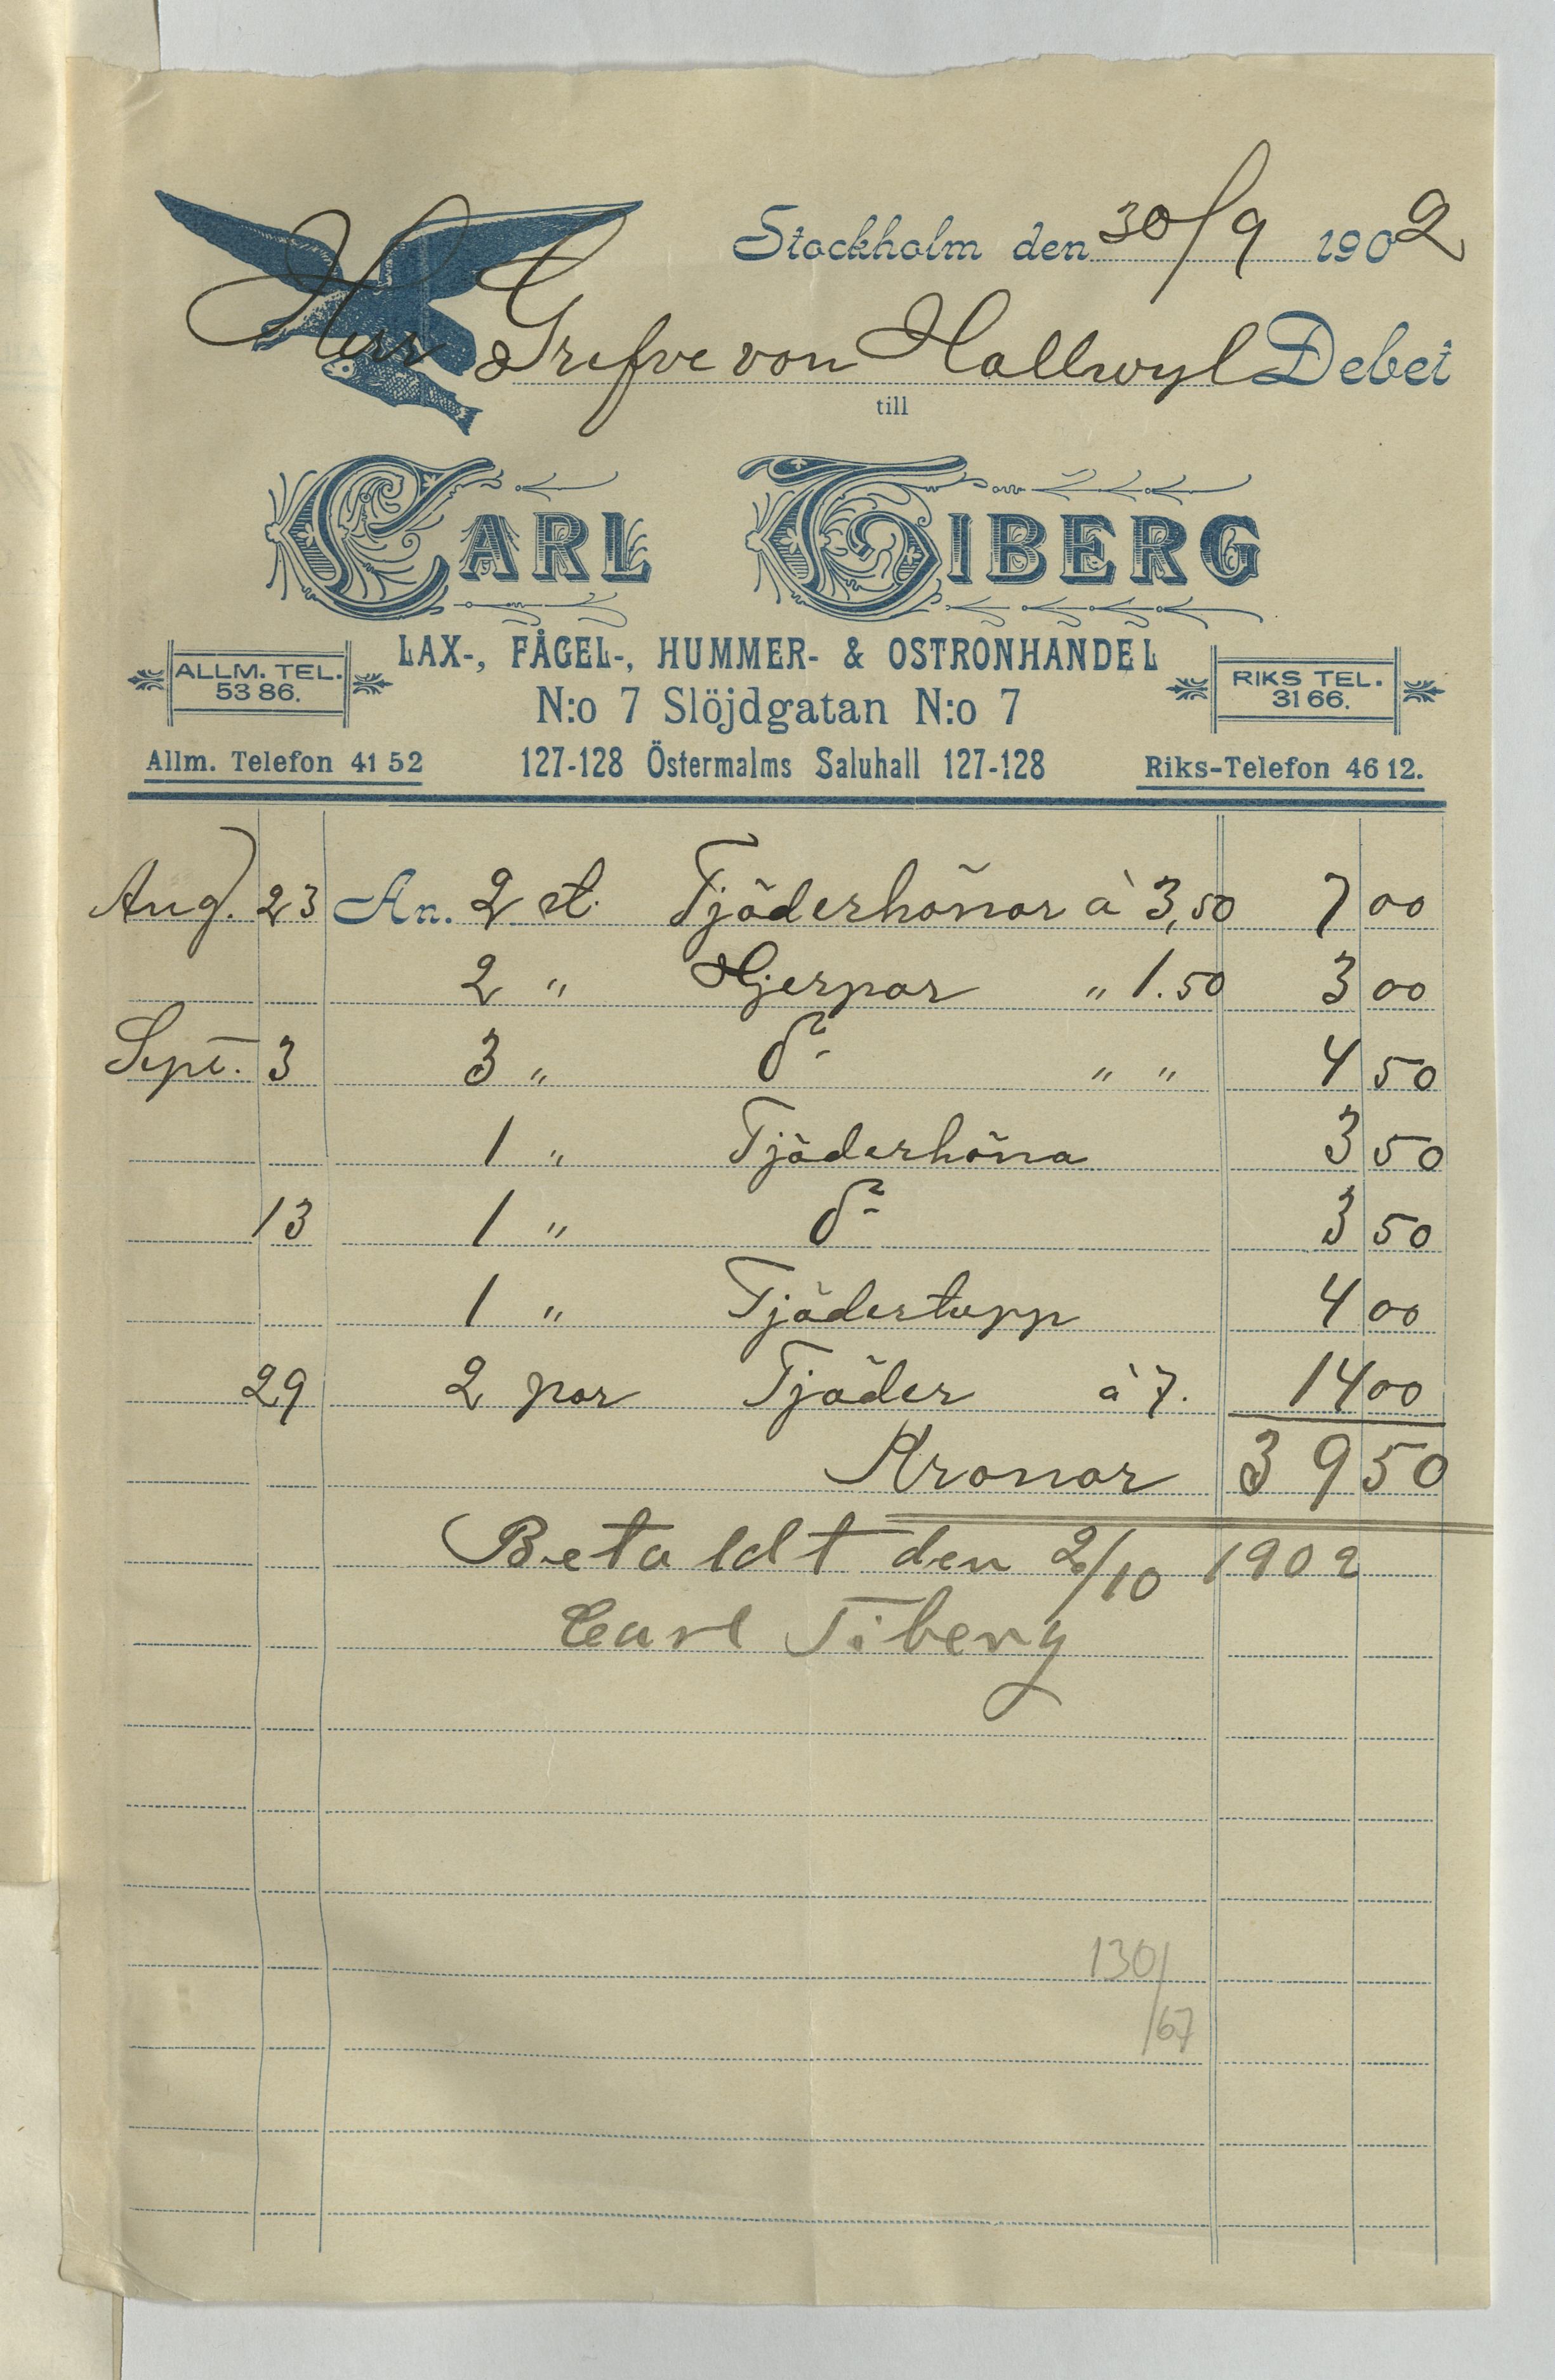 Stockholm den 30/9 1902
Herr Grefve von Hallwyl Debet
till
CARL TIBERG
LAX-, FÅGEL-, HUMMER- & OSTRONHANDEL
ALLM. TEL. 53 86.
N:o 7 Slöjdgatan N:o 7
RIKS TEL. 31 66.
Allm. Telefon 41 52 127-128 Östermalms Saluhall 127-128 Riks-Telefon 46 12.
Aug. 23 An. 2 st. Tjäderhönor à 3,50 7 00
2 " Hjerpar " 1.50 3 00
Sept. 3 3 " do " " 4 50
1 " Tjäderhöna 3 50
13 1 " do 3 50
1 " Tjädertupp 4 00
29 2 par Tjäder à 7. 14 00
Kronor 39 50
Betaldt den 2/10 1902
Carl Tiberg
130/
/67